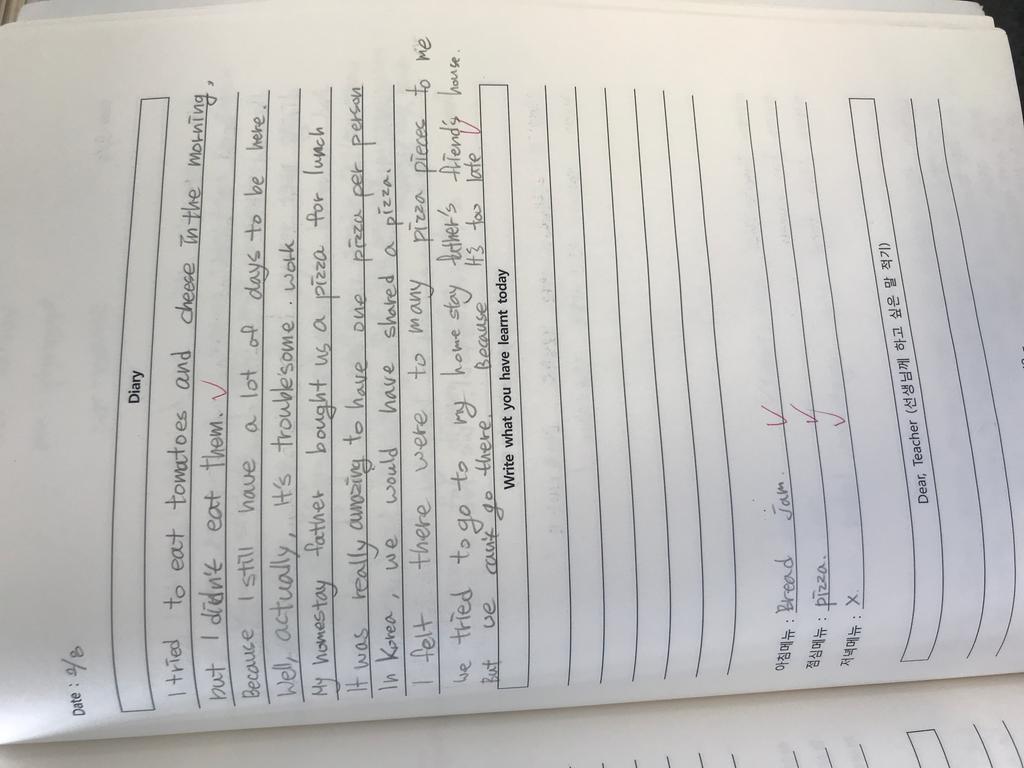 Date : 2/8
Diary
I tried to eat tomatoes and cheese in the morning,
but I didn't eat them.
Because I still have a lot of days to be here.
Well, actually, It's troublesome. work
My homestay father bought us a pizza for lunch
It was really amazing to have one pizza per person
In Korea, we would have shared a pizza.
I felt there were to many pizza pieces to me
we tried to go to my home stay father's friend's house.
But we can't go there. Because It's too late
Write what you have learnt today
아침메뉴 : Bread Jam.
점심메뉴 : pizza.
저녁메뉴 : X.
Dear, Teacher (선생님께 하고 싶은 말 적기)